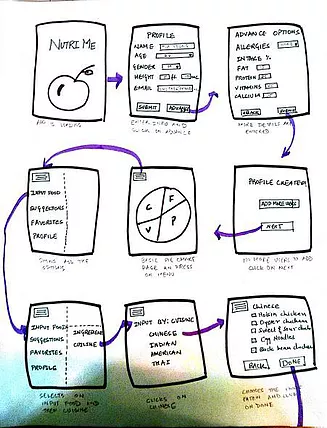 NUTRI ME
APP IS LOADING
PROFILE
NAME
AGE
GENDER
HEIGHT ft
EMAIL
SUBMIT ADVANCE
ENTER INFO AND
CLICK ON ADVANCE
ADVANCE OPTIONS
ALLERGIES
INTAKE %
FAT
PROTEIN
VITAMINS
CALCIUM
MORE DETAILS ARE
ENTERED
INPUT FOOD
SUGGESTIONS
FAVORITES
PROFILE
OPTIONS
C F
V P
BASIC PIE CHART
PAGE AND PRESS
ON MENU
PROFILE CREATED!
ADD MORE USERS
NEXT
NO MORE USERS SO
CLICK ON NEXT
INPUT FOOD
SUGGESTIONS
FAVORITES
PROFILE
INGREDIENT
CUISINE
SELECTS ON
INPUT FOOD AND
THEN CUISINE
INPUT BY: CUISINE
CHINESE
INDIAN
AMERICAN
THAI
CLICKS ON
CHINESE
Chinese
Hakin chicken
Oyster chicken
Sweet & sour
Egg Noodles
Black bean
BACK DONE
CHOOSES THE
EATEN AND
ON DONE